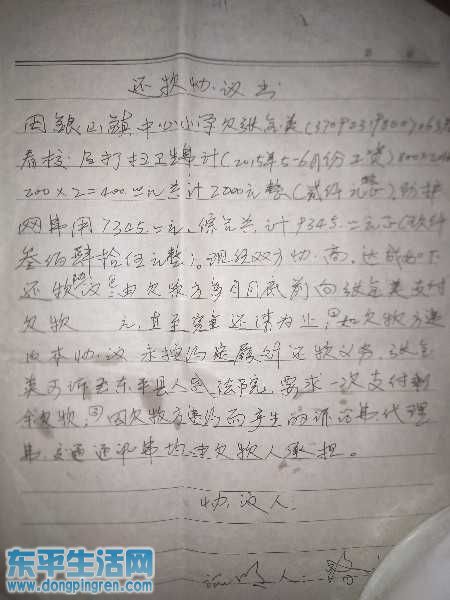 还款协议书
因银山镇中心小学欠张金英(3709231980
看校、后打扫卫生共计(2015年5-6月份工资)800×2
200×2=400元共计2000元整(贰仟元整)防护
网费用7345元,综合共计9345元正(玖仟
叁佰肆拾伍元整)。现经双方协商,达成如下
还款协议:由欠款方每月月底前向张金英支付
欠款 元,直至完全还清为止,如欠款方违
反本协议未按约定履行还款义务,张金
英可诉至东平县人民法院,要求一次支付剩
余欠款,因欠款方违约而产生的诉讼费代理
费、交通通讯费均由欠款人承担。
协议人
证明人:
东平生活网
www.dongpingren.com